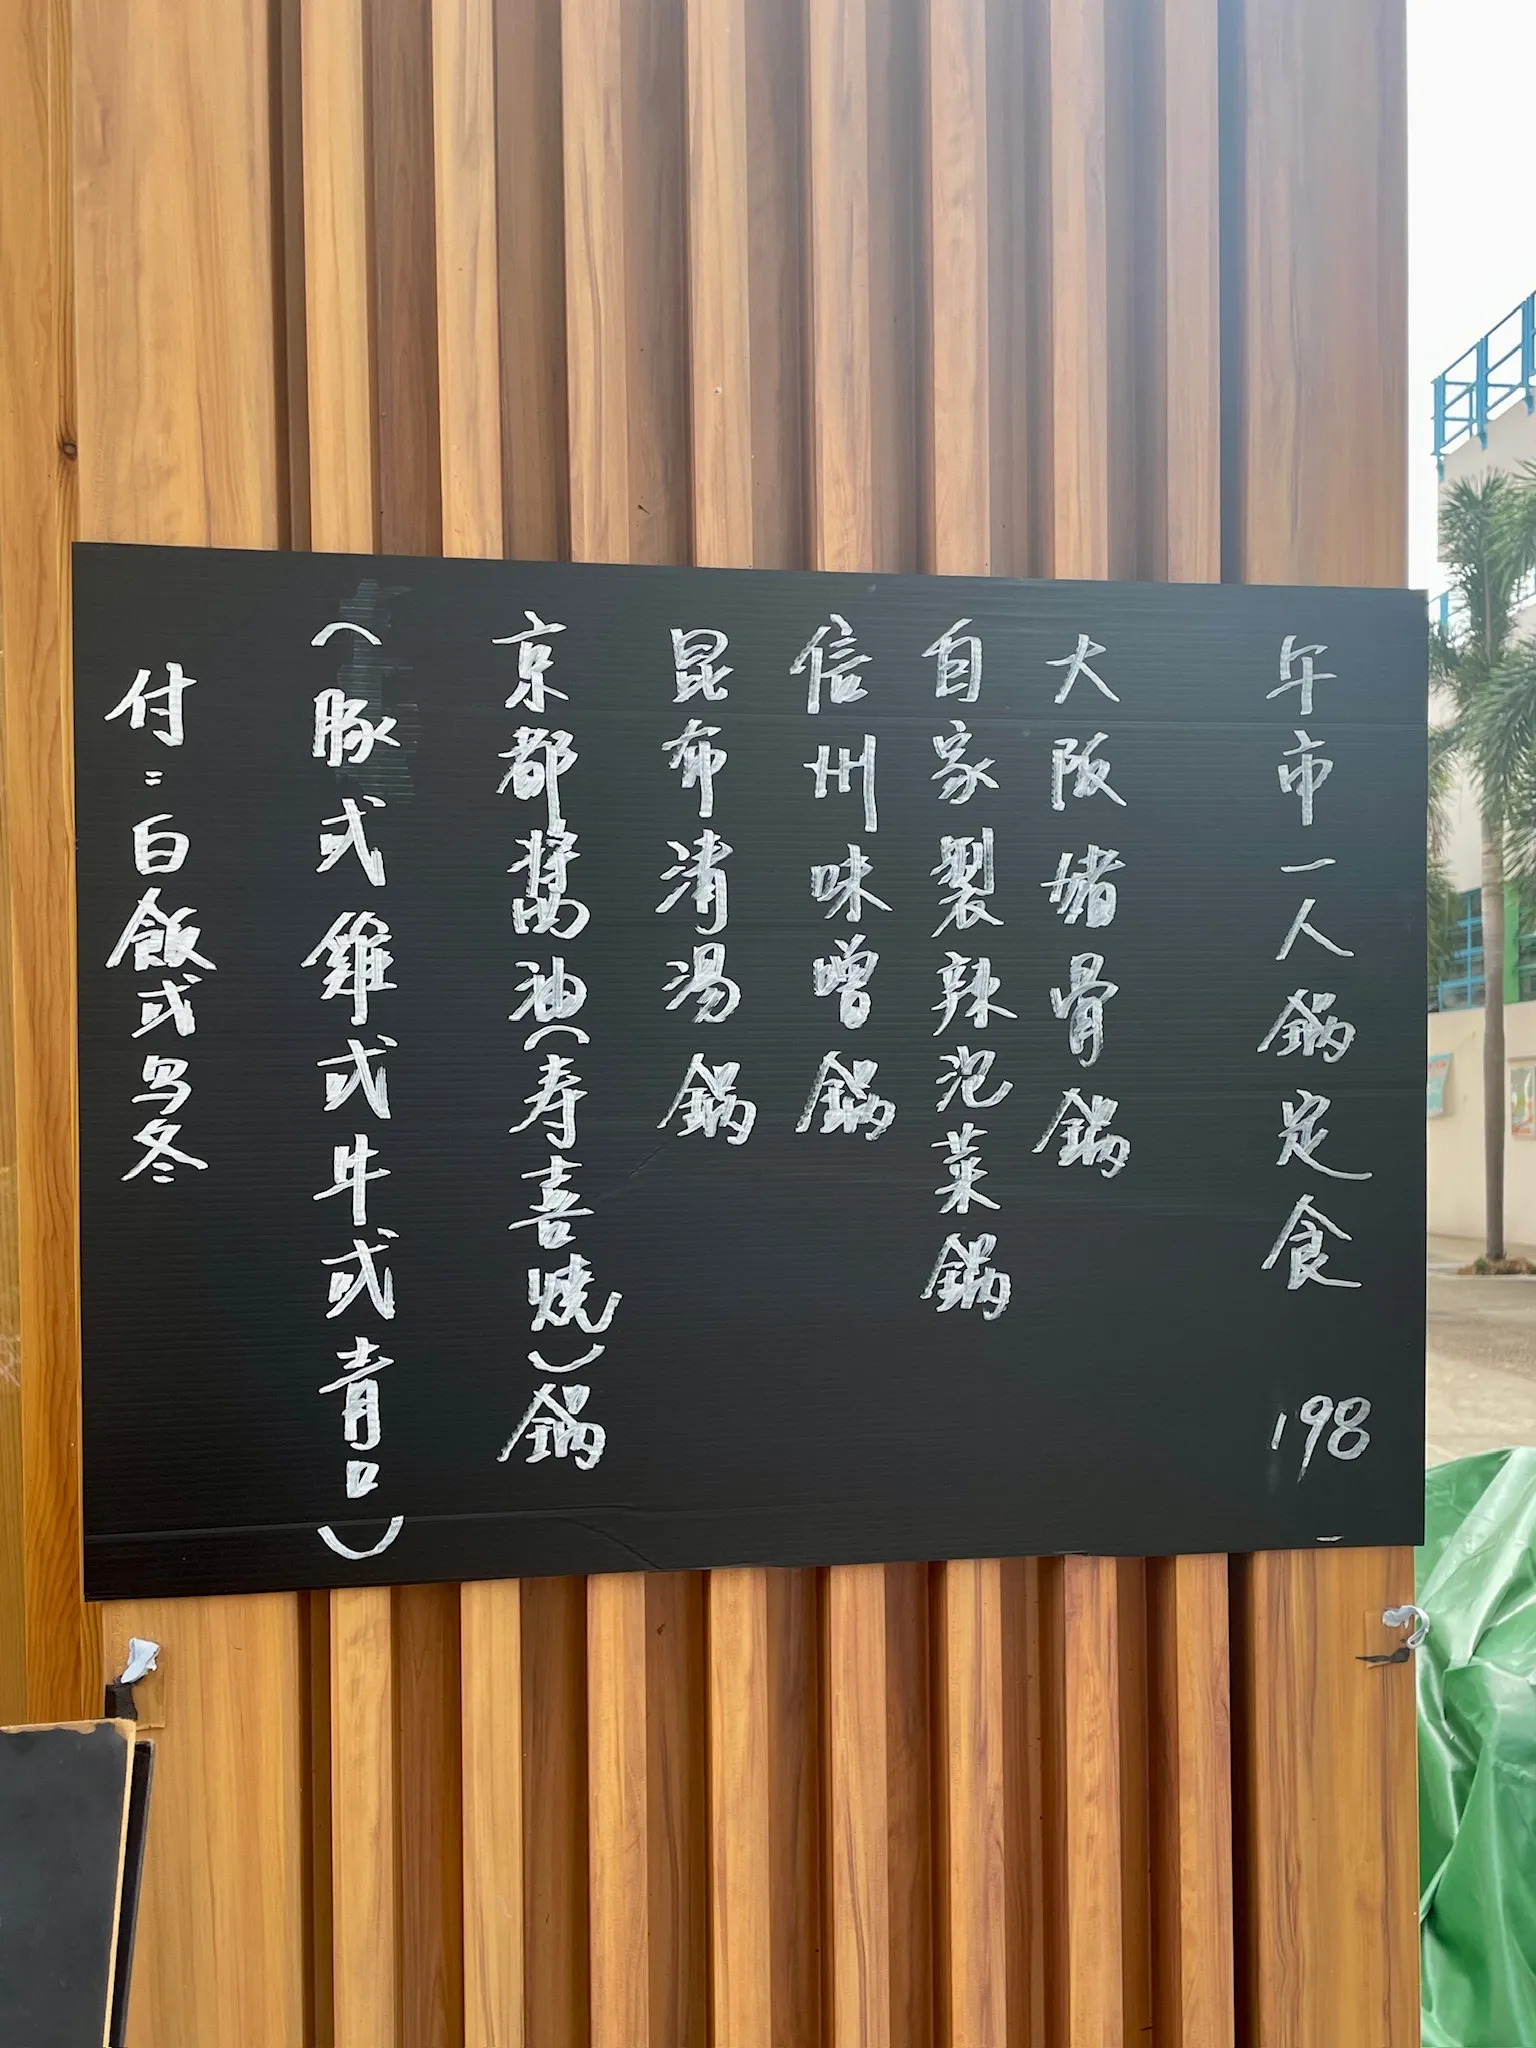 午市一人鍋定食 198
大阪豬骨鍋
自家製辣泡菜鍋
信州味噌鍋
昆布清湯鍋
京都醬油(寿喜燒)鍋
(豚或雞或牛或青口)
付:白飯或乌冬